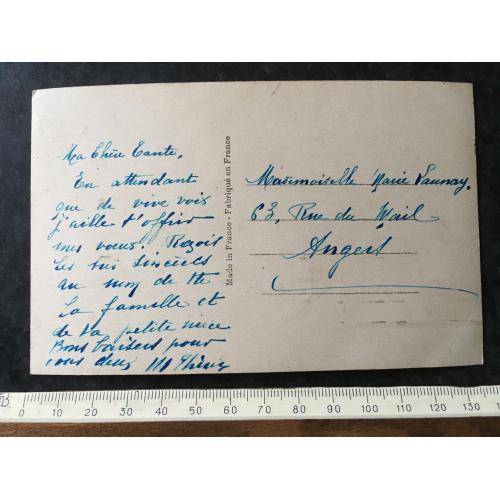 Ma Chère Tante,
En attendant
que de vive vois
j'aille t'offrir
mes voeux. Reçois
les très sincères
au nom de tte
la famille et
de ta petite nièce
Bons baisers pour
vous deux M Thérèse
Made in France - Fabriqué en France
Mademoiselle Marie Launay.
63, Rue du Mail
Angers
0 10 20 30 40 50 60 70 80 90 100 110 120 130